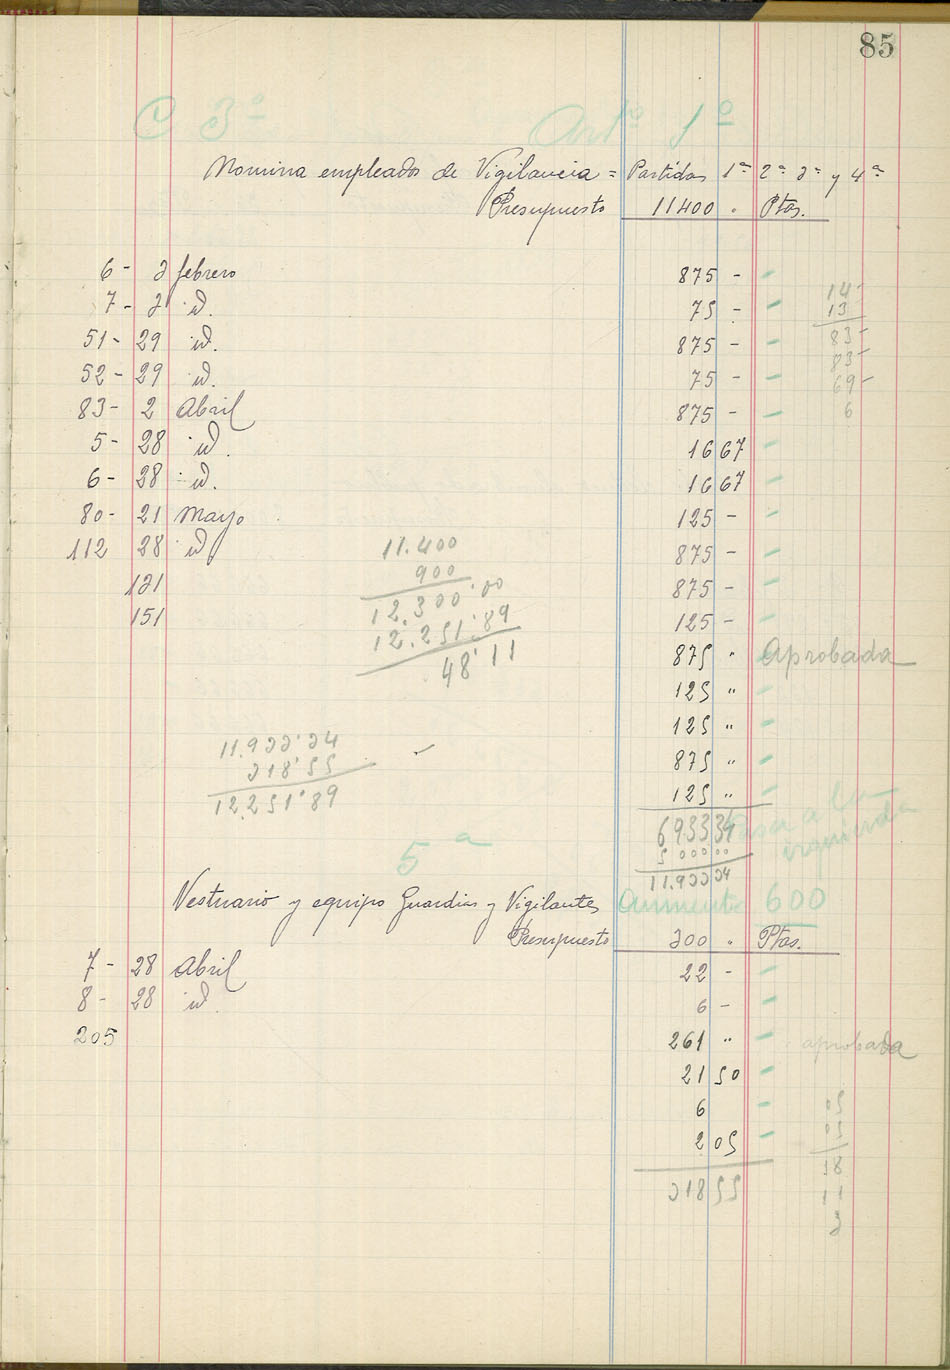 85
C 3º Artº 1º
Nomina empleados de Vigilancia = Partidas 1ª 2ª 3ª y 4ª
Presupuesto 11400 " Ptas.
6 - 3 febrero 875 -
7 - 3 id. 75 -
51 - 29 id. 875 -
52 - 29 id. 75 -
83 - 2 Abril 875 -
5 - 28 id. 16 67
6 - 28 id. 16 67
80 - 21 Mayo 125 -
112 28 id 875 -
131 875 -
151 125 -
875 " Aprobada
125 "
125 "
875 "
125 "
6933 34
5000 00
11.933 34
14
13
83
83
69
6
11.400
900
12.300'00
12.251'89
48'11
11.933'34
318'55
12.251'89
Pasa a la
izquierda
5ª
Vestuario y equipo Guardias y Vigilantes Aumento 600
Presupuesto 300 " Ptas.
7 - 28 Abril 22 -
8 - 28 id. 6 -
205 261 " aprobada
21 50
6
2 05
318 55